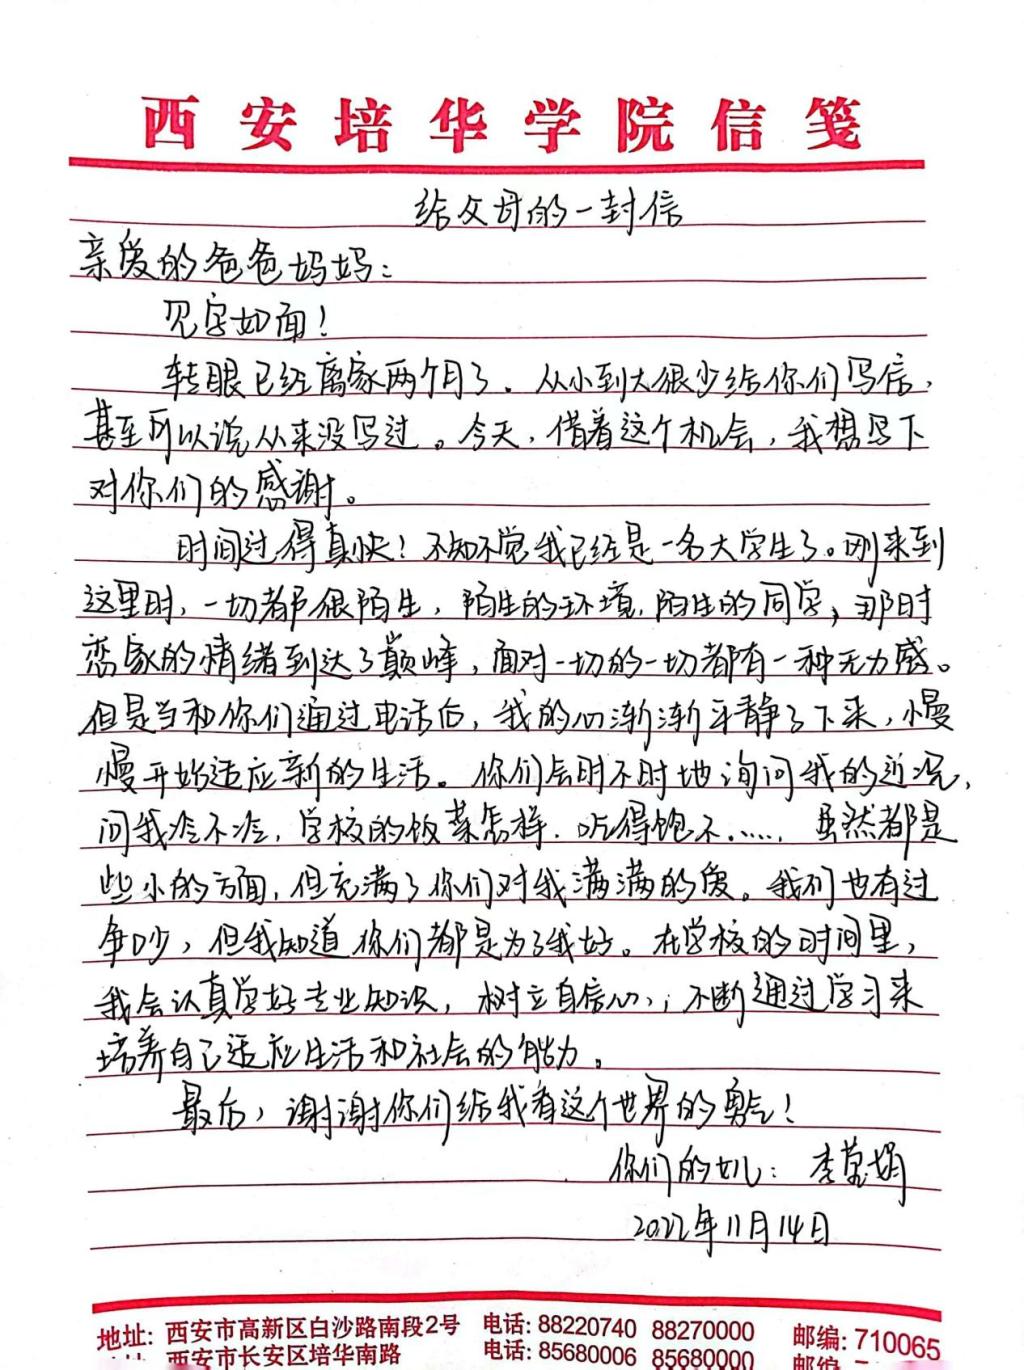 西安培华学院信笺
给父母的一封信
亲爱的爸爸妈妈：
见字如面！
转眼已经离家两个月了．从小到大很少给你们写信，
甚至可以说从来没写过。今天，借着这个机会，我想写下
对你们的感谢。
时间过得真快！不知不觉我已经是一名大学生了。刚来到
这里时，一切都很陌生，陌生的环境，陌生的同学，那时
恋家的情绪到达了巅峰，面对一切的一切都有一种无力感。
但是当和你们通过电话后，我的心渐渐平静了下来，慢
慢开始适应新的生活。你们会时不时地询问我的近况，
问我冷不冷，学校的饭菜怎样，吃得饱不……虽然都是
些小的方面，但充满了你们对我满满的爱。我们也有过
争吵，但我知道你们都是为了我好。在学校的时间里，
我会认真学好专业知识，树立自信心，；不断通过学习来
培养自己适应生活和社会的能力。
最后，谢谢你们给我看这个世界的勇气！
你们的女儿：李 娟
2022年11月14日
地址：西安市高新区白沙路南段2号 电话：88220740 88270000 邮编：710065
西安市长安区培华南路 电话：85680006 85680000